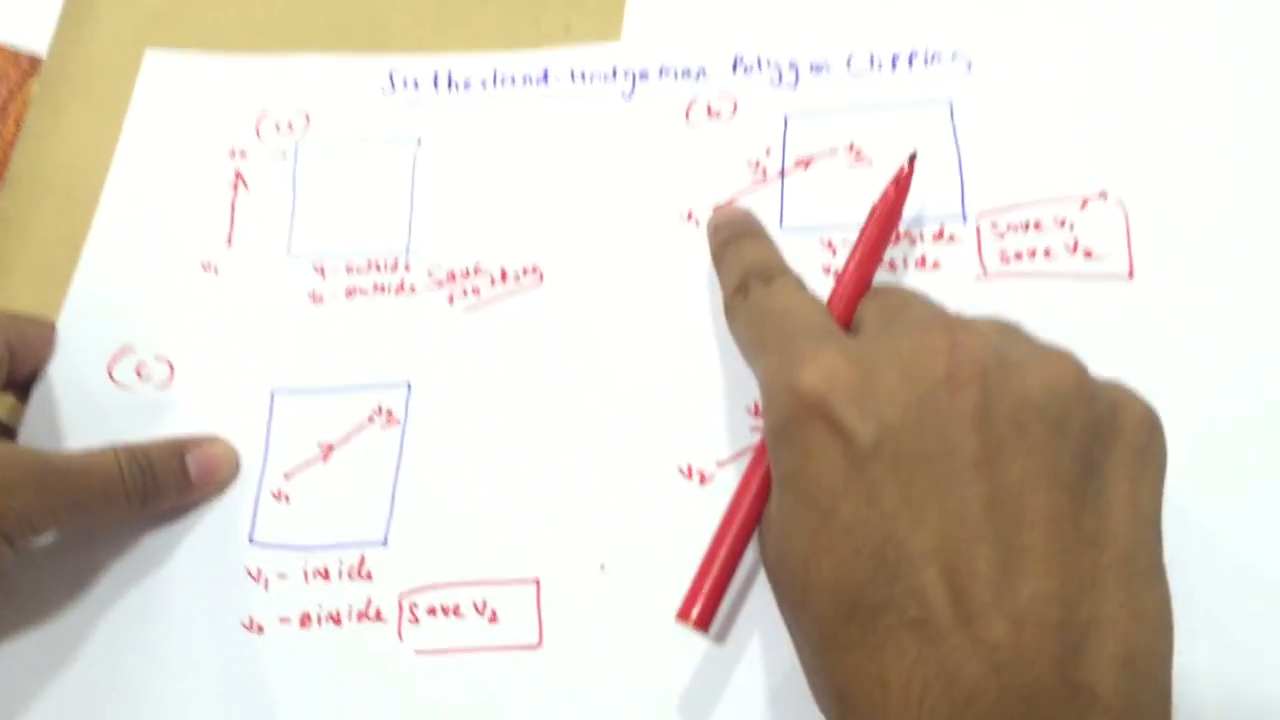 Sutherland-Hodgeman Polygon Clipping
(a)
v2
v1
v1 - outside
v2 - outside Save
(b)
v1' v2
v1
save v1'
save v2
(c)
v2
v1
v1 - inside
v2 - inside save v2
v2